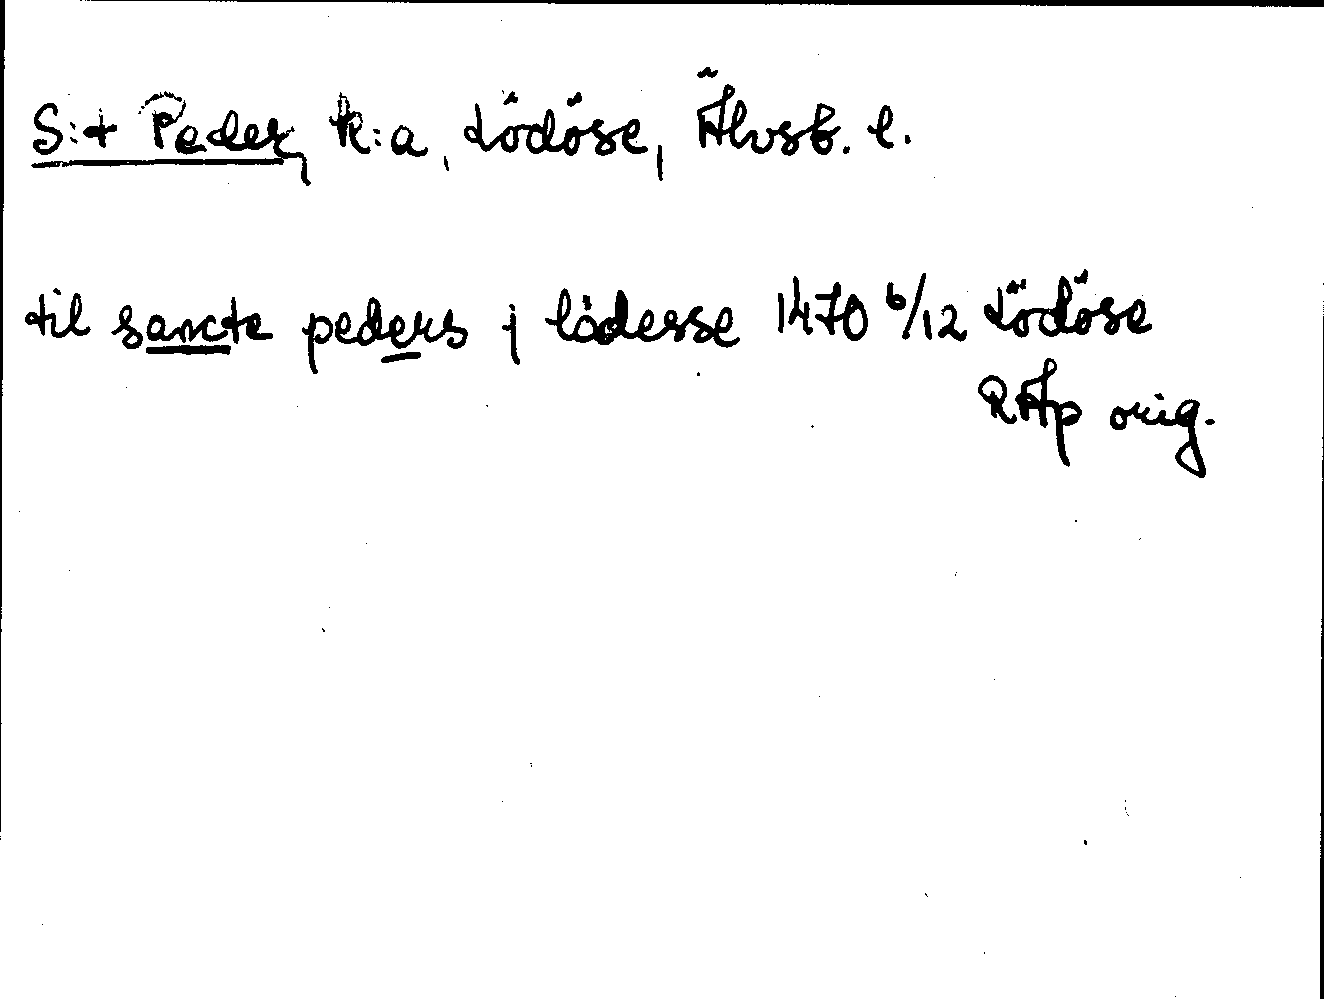 S:t Peder, k:a, Lödöse, Älvsb. l.
til sancte peders j lödesse 1470 6/12 Lödöse
RAp orig.